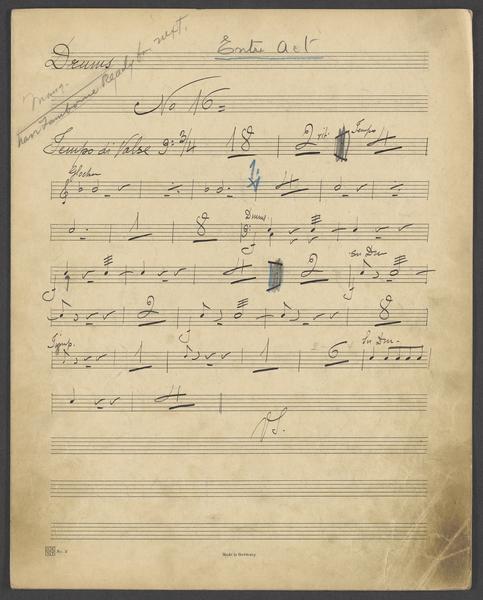 Entre Act
Drums
have Tambourine Ready for next.
No 16=
Tempo di Valse 3/4 18 2 rit. Tempo 4
Glocken
4
1 8 Drums
4 2 Sn Dm
2 8
Tymp. 1 1 6 Sn Dm-
4
V.S.
No. 2
Made in Germany